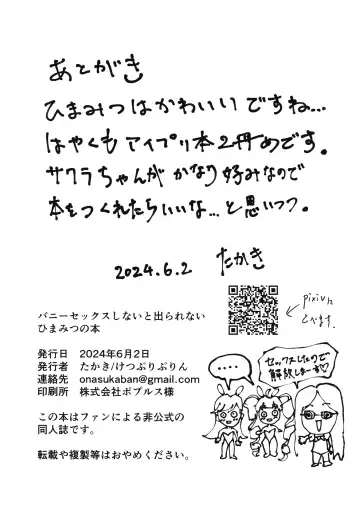 あとがき
ひまみつはかわいいですね…
はやくもアイプリ本2冊めです。
サクラちゃんがかなり好みなので
本をつくれたらいいな…と思いつつ。
2024.6.2 たかき
pixivに
とべます。
バニーセックスしないと出られない
ひまみつの本
発行日 2024年6月2日
発行者 たかき/けつぷりぷりん
連絡先 onasukaban@gmail.com
印刷所 株式会社ポプルス様
この本はファンによる非公式の
同人誌です。
転載や複製等はおやめください。
‥‥
セックスしたので
解散しまーす♡